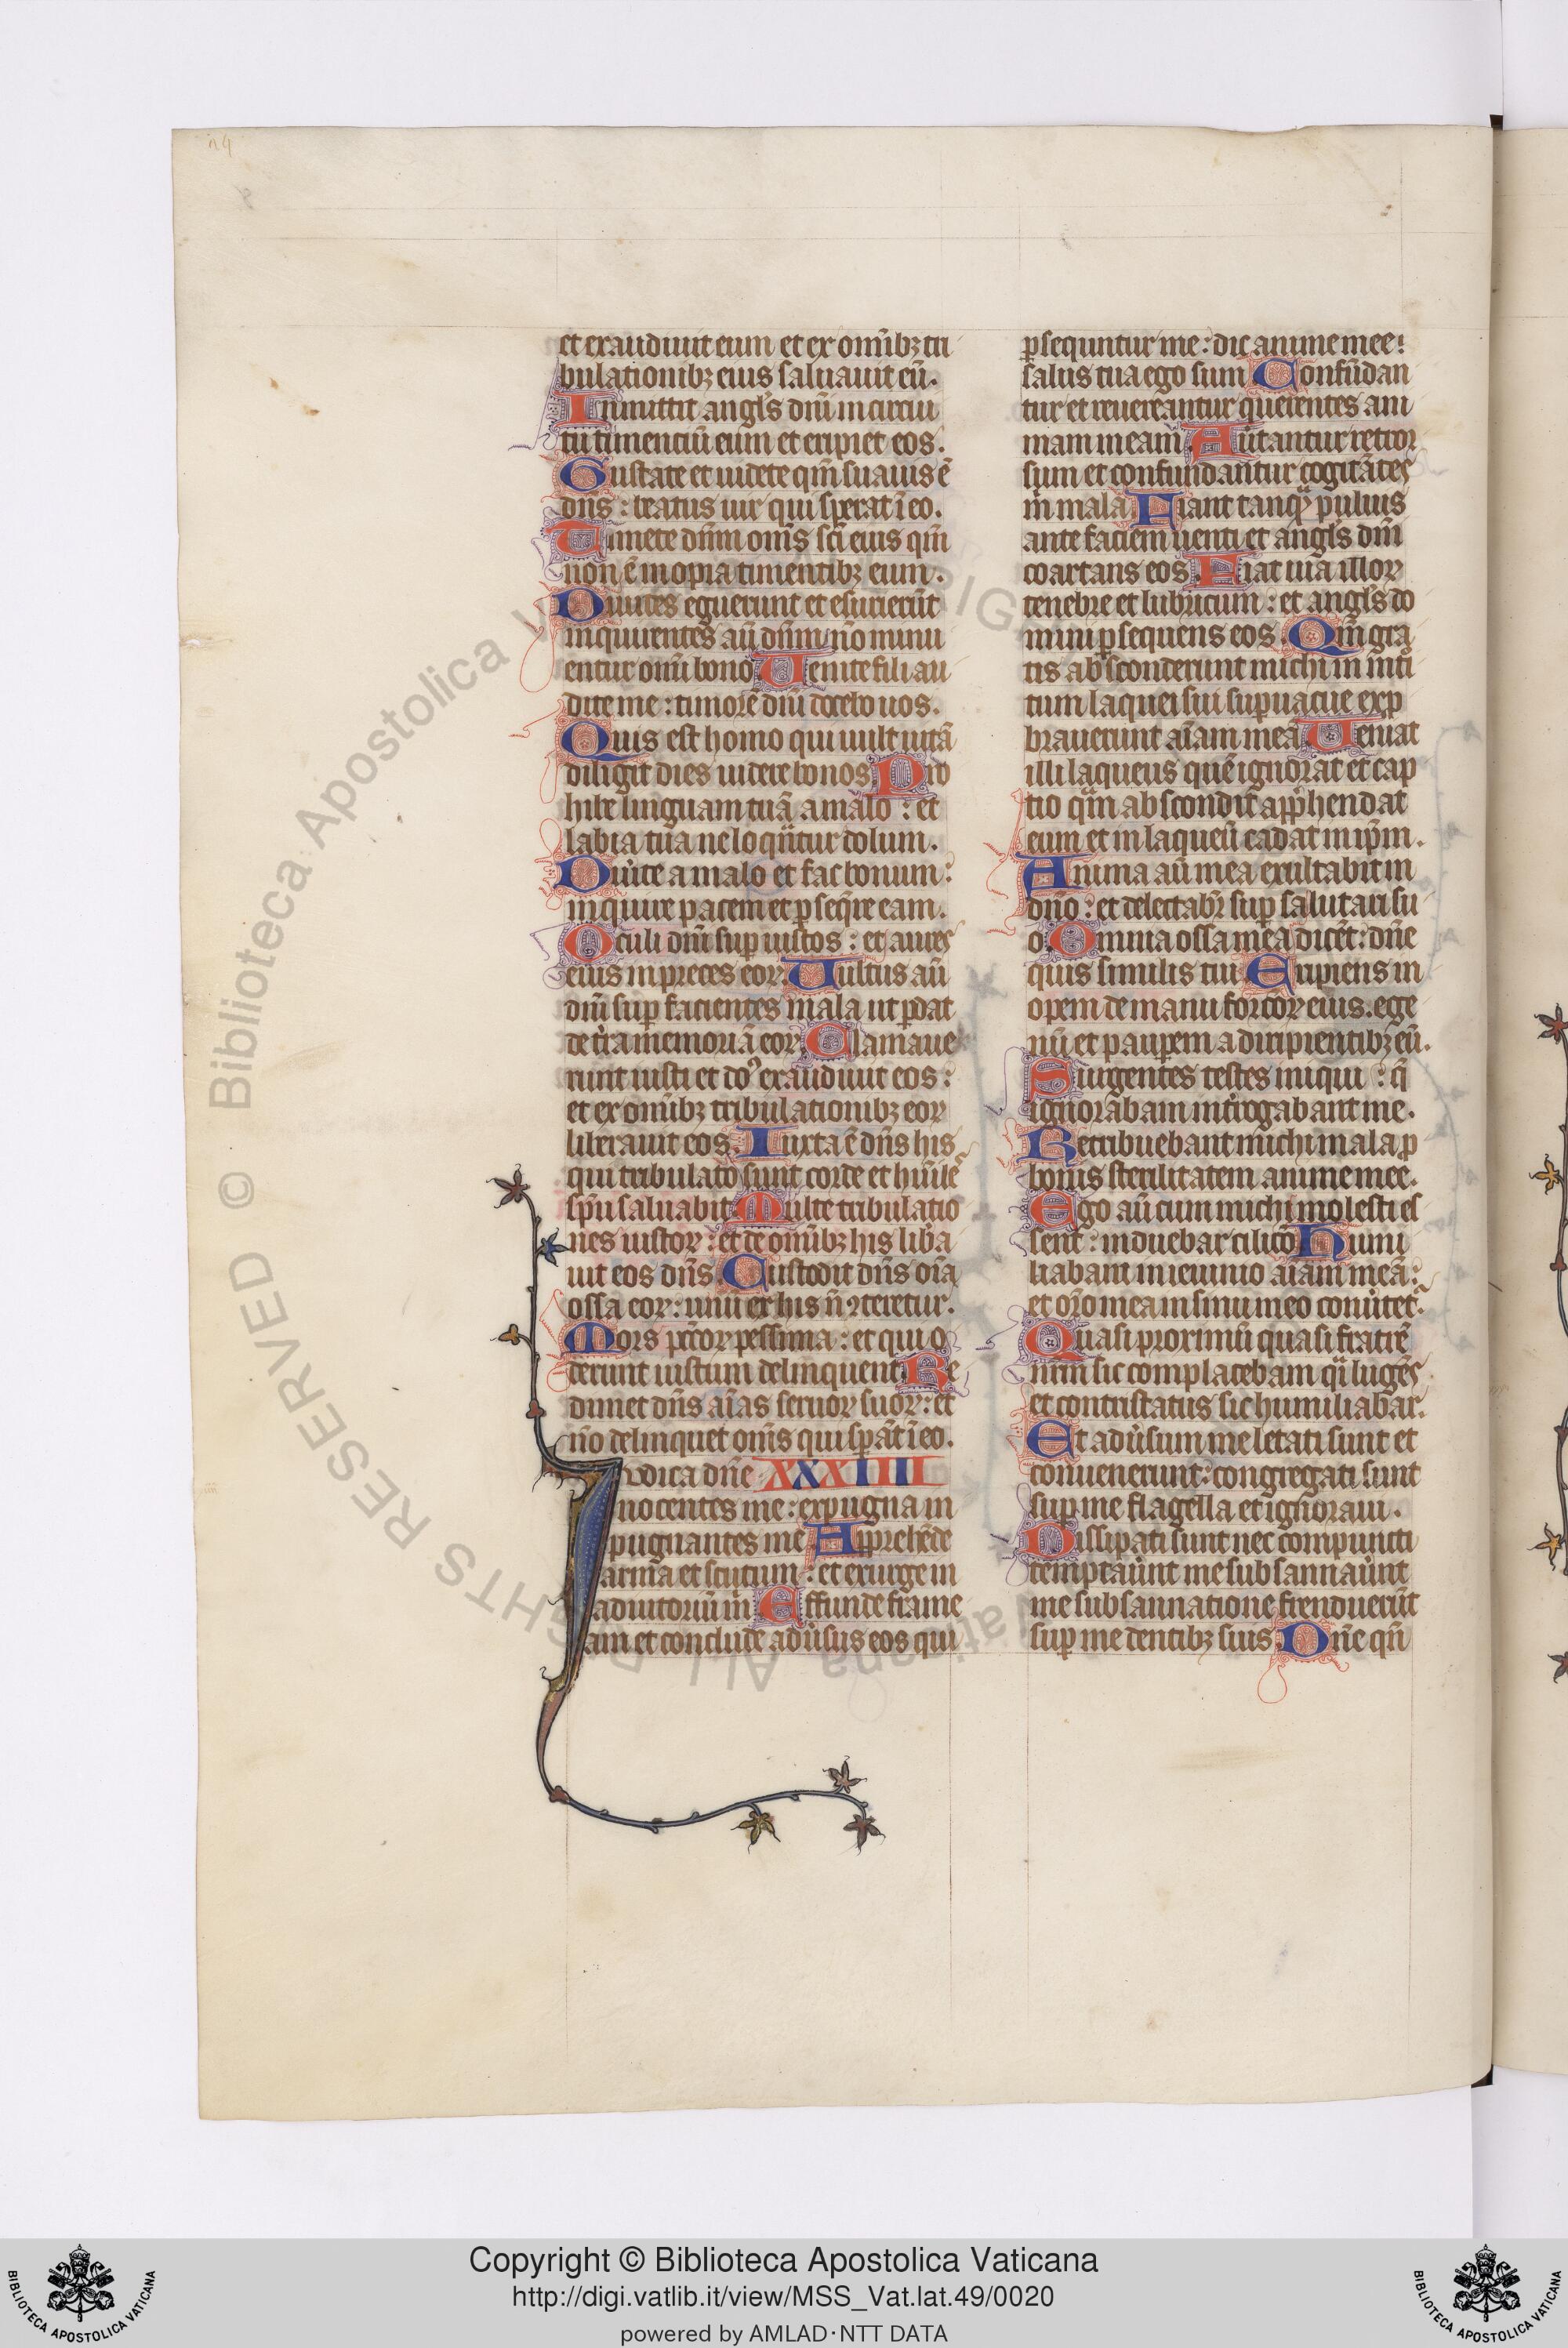 et exaudiuit eum et ex om̄ibꝫ tri
bulationibꝫ eius saluauit eū.
Inmittit angl's dn̄i in circui
tu timenciū eum et eripiet eos.
Gustate et uidete qm̄ suauis ē
dn̄s : beatus uir qui sperat ī eo.
Timete dn̄m om̄s sc̄i eius qm̄
non ē inopia timentibꝫ eum.
Diuites eguerunt et esurierūt
inquirentes aū dn̄m n̄o minu
entur om̄i bono Uenite fili au
dite me : timorē dn̄i docebo uos.
Quis est homo qui uult uitā
diligit dies uidere bonos. Pro
hibe linguam tuā a malo : et
labia tua ne loqūtur dolum.
Diu'te a malo et fac bonum :
inquire pacem et ꝑseq̄re eam.
Oculi dn̄i sup iustos : et aures
eius in preces eoꝝ. Uultus aū
dn̄i sup facientes mala ut ꝑdat
de t'ra memoriā eoꝝ Clamaue
runt iusti et do' exaudiuit eos :
et ex om̄ibꝫ tribulationibꝫ eoꝝ
liberauit eos. Iuxta ē dn̄s his
qui tribulato sunt corde et hu'ile
sp̄u saluabit. Multe tribulatio
nes iustoꝝ : et de om̄ibꝫ his lib'a
uit eos dn̄s. Custodit dn̄s oīa
ossa eoꝝ : unū ex his n̄ ꝯteretur.
Mors pc̄coꝝ pessima : et qui o
derunt iustum delinquent Re
dimet dn̄s aīas seruoꝝ suoꝝ : et
n̄o delinquet om̄s qui sꝑāt ī eo.
Iudica dn̄e XXXIIII
nocentes me : expugna in
pugnantes me Apprehēde
arma et scutum : et exurge in
adiutoriū m̄ Effunde frame
am et conclude adu'sus eos qui
ꝑsequntur me : dic anime mee :
salus tua ego sum Confūdan
tur et reuereantur querentes ani
mam meam Au'tantur retror
sum et confundantur cogitātes
m̄ mala Fiant tanqꝫ puluis
ante faciem uenti et angl's dn̄i
coartans eos. Fiat uia illoꝝ
tenebre et lubricum : et angl's do
mini ꝑsequens eos. Qm̄ gra
tis absconderunt michi in int'i
tum laquei sui supuacue exp
brauerunt aīam meā Ueniat
illi laqueus quē ignorat et cap
tio qm̄ abscondit app'hendat
eum et in laqueū cadat in ip̄m.
Anima aū mea exultabit in
dn̄o : et delectabr̄ sup salutari su
o. Omnia ossa mea dicēt : dn̄e
quis similis tui Eripiens in
opem de manu forcioꝝ eius. ege
nū et paupem a diripientibꝫ eū.
Surgentes testes iniqui : q̄
ignorabam int'rogabant me.
Retribuebant michi mala ꝓ
bonis sterilitatem anime mee.
Ego aū cum michi molesti es
sent : induebar cilicio Humi
liabam in ieiunio aīam meā :
et or̄o mea in sinu meo conu'tet.
Quasi proximū quasi fratrē
nrm̄ sic complacebam qi lugēs
et contristatus sic humiliabar.
Et adu'sum me letati sunt et
conuenerunt : congregati sunt
sup me flagella et ignoraui.
Dissipati sunt nec compuncti
temptau'nt me subsannau'nt
me subsannatione frenduerūt
sup me dentibꝫ suis. Dn̄e qn̄
Copyright © Biblioteca Apostolica Vaticana
http://digi.vatlib.it/view/MSS_Vat.lat.49/0020
powered by AMLAD·NTT DATA
BIBLIOTECA APOSTOLICA VATICANA
BIBLIOTECA APOSTOLICA VATICANA